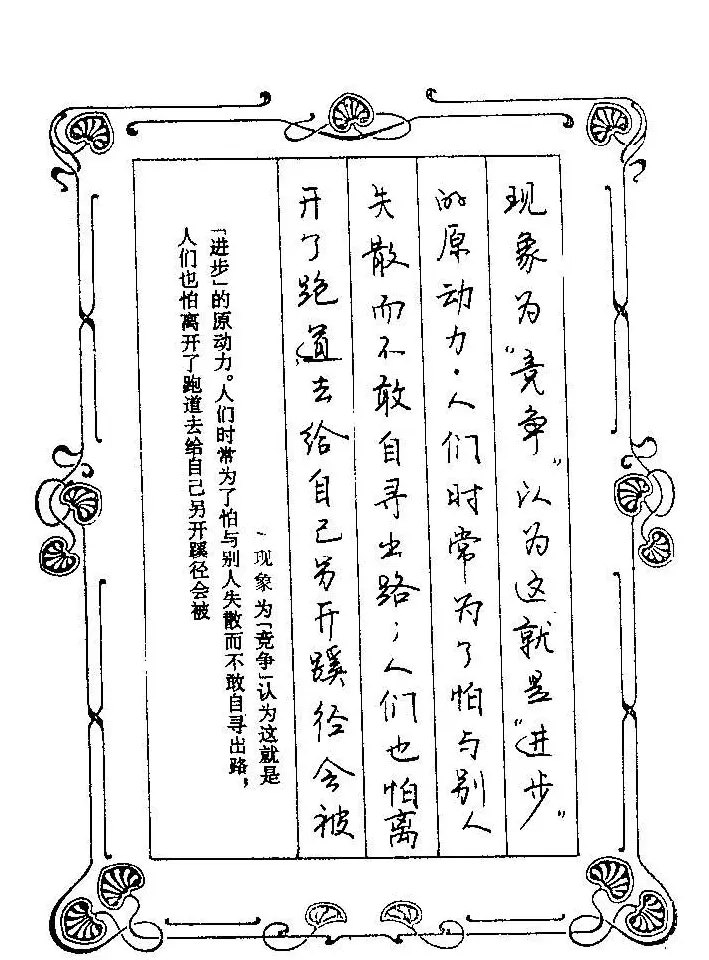 现象为“竞争”认为这就是“进步”
的原动力.人们时常为了怕与别人
失散而不敢自寻出路;人们也怕离
开了跑道去给自己另开蹊径会被
现象为「竞争」认为这就是
「进步」的原动力。人们时常为了怕与别人失散而不敢自寻出路,
人们也怕离开了跑道去给自己另开蹊径会被